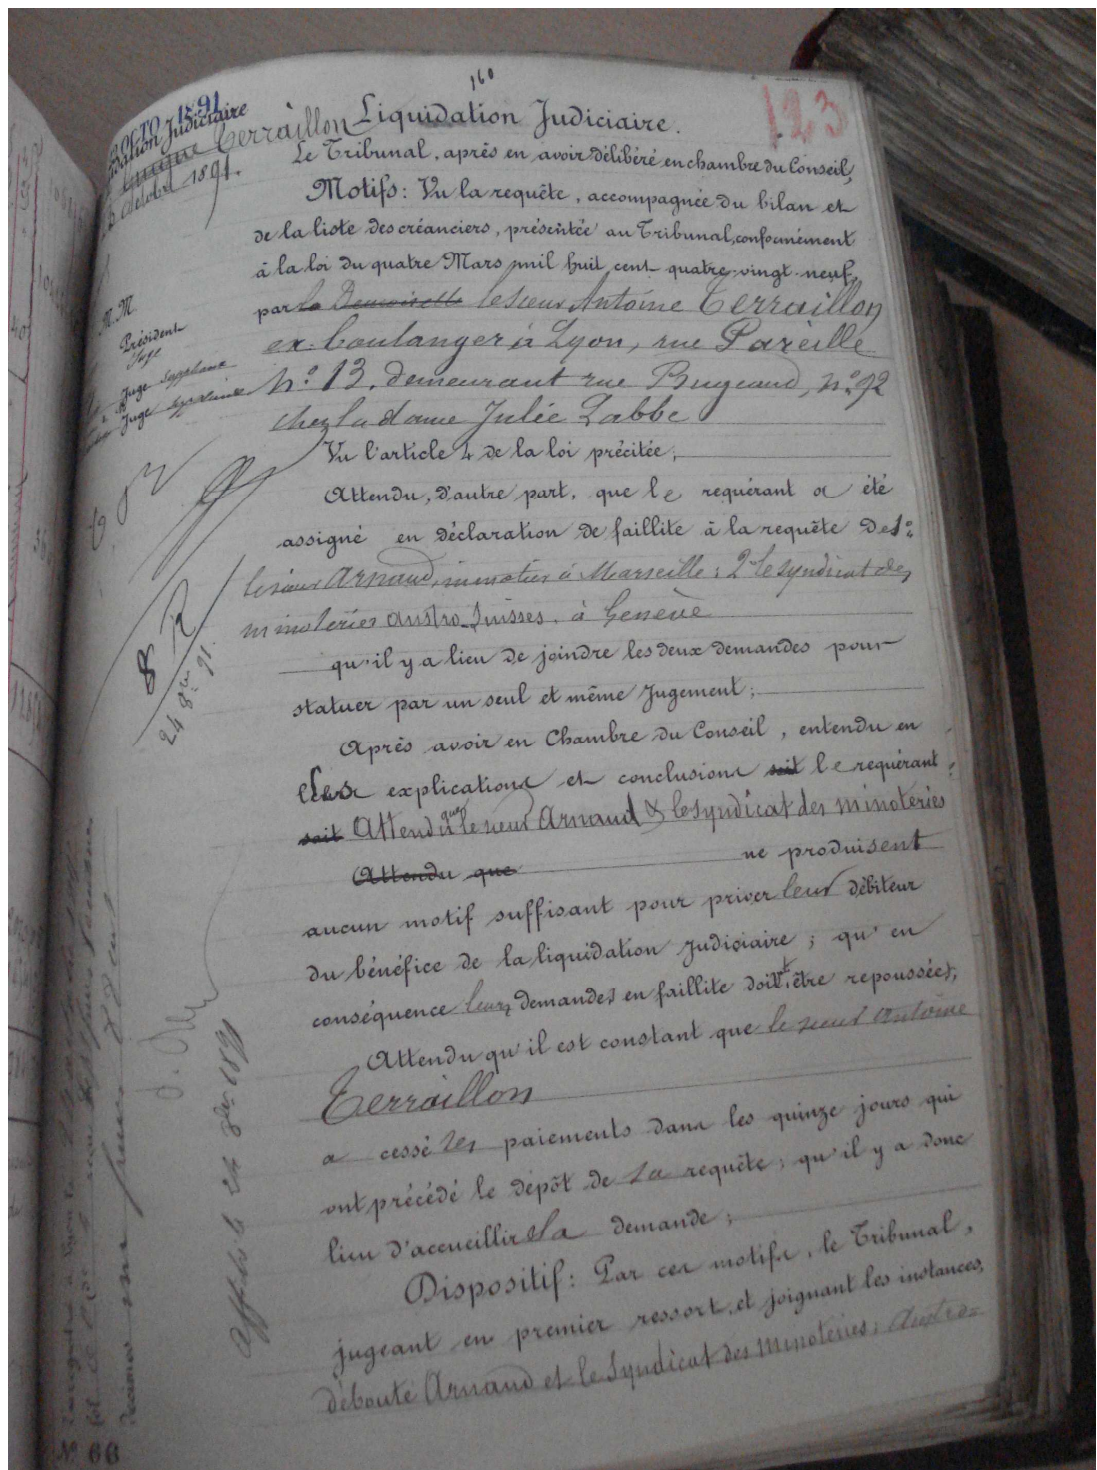 160
123
OCTO 1891
Liquidation Judiciaire.
Judiciaire
Terraillon
Octobre 1891.
Le Tribunal, après en avoir délibéré en chambre du Conseil,
Motifs: Vu la requête, accompagnée du bilan et
de la liste des créanciers, présentée au Tribunal, conformément
à la loi du quatre Mars mil huit cent quatre-vingt-neuf,
par la Demoiselle le sieur Antoine Terraillon
ex-boulanger à Lyon, rue Pareille
No. 13, demeurant rue Bugeaud, no. 92
chez la dame Julie Labbe
M.M.
Président
Juge
Juge Suppléant
Juge Suppléant
Vu l'article 4 de la loi précitée;
Attendu, d'autre part, que le requérant a été
assigné en déclaration de faillite à la requête de 1o:
le sieur Arnaud, minotier à Marseille; 2o le syndicat des
minoteries austro-suisses, à Genève
8 R
24 8bre 91.
qu'il y a lieu de joindre les deux demandes pour
statuer par un seul et même Jugement;
Après avoir en Chambre du Conseil, entendu en
ses explications et conclusions soit le requérant;
soit Attendu que le sieur Arnaud & le syndicat des minoteries
Attendu que ne produisent
aucun motif suffisant pour priver leur débiteur
du bénéfice de la liquidation judiciaire; qu'en
conséquence leurs demandes en faillite doivt être repoussées;
Attendu qu'il est constant que le sieur Antoine
Terraillon
a cessé ses paiements dans les quinze jours qui
ont précédé le dépôt de sa requête; qu'il y a donc
lieu d'accueillir sa demande;
Dispositif: Par ces motifs, le Tribunal,
jugeant en premier ressort, et joignant les instances,
déboute Arnaud et le Syndicat des Minoteries, Austro-
No 66